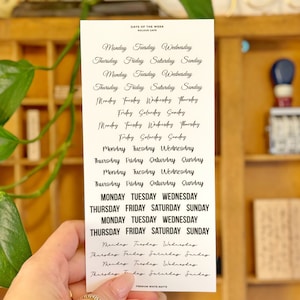 DAYS OF THE WEEK
Monday Tuesday Wednesday
Thursday Friday Saturday Sunday
Monday Tuesday Wednesday
Thursday Friday Saturday Sunday
Monday Tuesday Wednesday Thursday
Friday Saturday Sunday
Monday Tuesday Wednesday Thursday
Friday Saturday Sunday
Monday Tuesday Wednesday
Thursday Friday Saturday Sunday
Monday Tuesday Wednesday
Thursday Friday Saturday Sunday
MONDAY TUESDAY WEDNESDAY
THURSDAY FRIDAY SATURDAY SUNDAY
MONDAY TUESDAY WEDNESDAY
THURSDAY FRIDAY SATURDAY SUNDAY
Monday Tuesday Wednesday
Thursday Friday Saturday Sunday
Monday Tuesday Wednesday
Thursday Friday Saturday Sunday